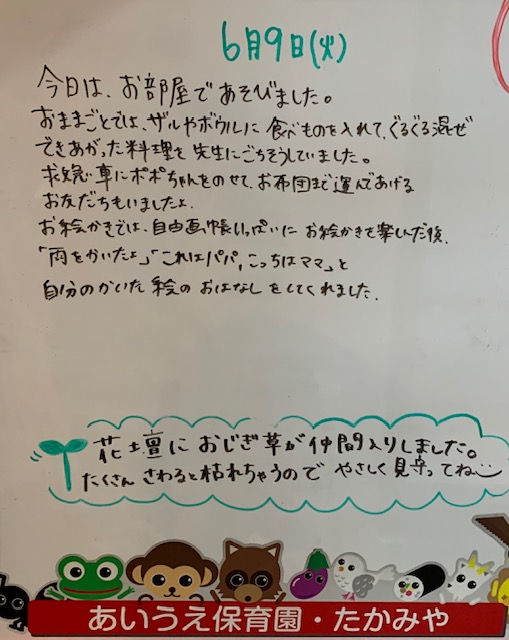 6月9日(火)
今日は、お部屋であそびました。
おままごとでは、ザルやボウルに食べものを入れて、ぐるぐる混ぜ
できあがった料理を先生にごちそうしていました。
救急車にポポちゃんをのせて、お布団まで運んであげる
お友だちもいましたよ
お絵かきでは、自由画帳いっぱいにお絵かきを楽しんだ後、
「雨をかいたよ」「これはパパ、こっちはママ」と
自分のかいた絵のおはなしをしてくれました。
花壇におじぎ草が仲間入りしました。
たくさんさわると枯れちゃうので やさしく見守ってね
あいうえ保育園・たかみや